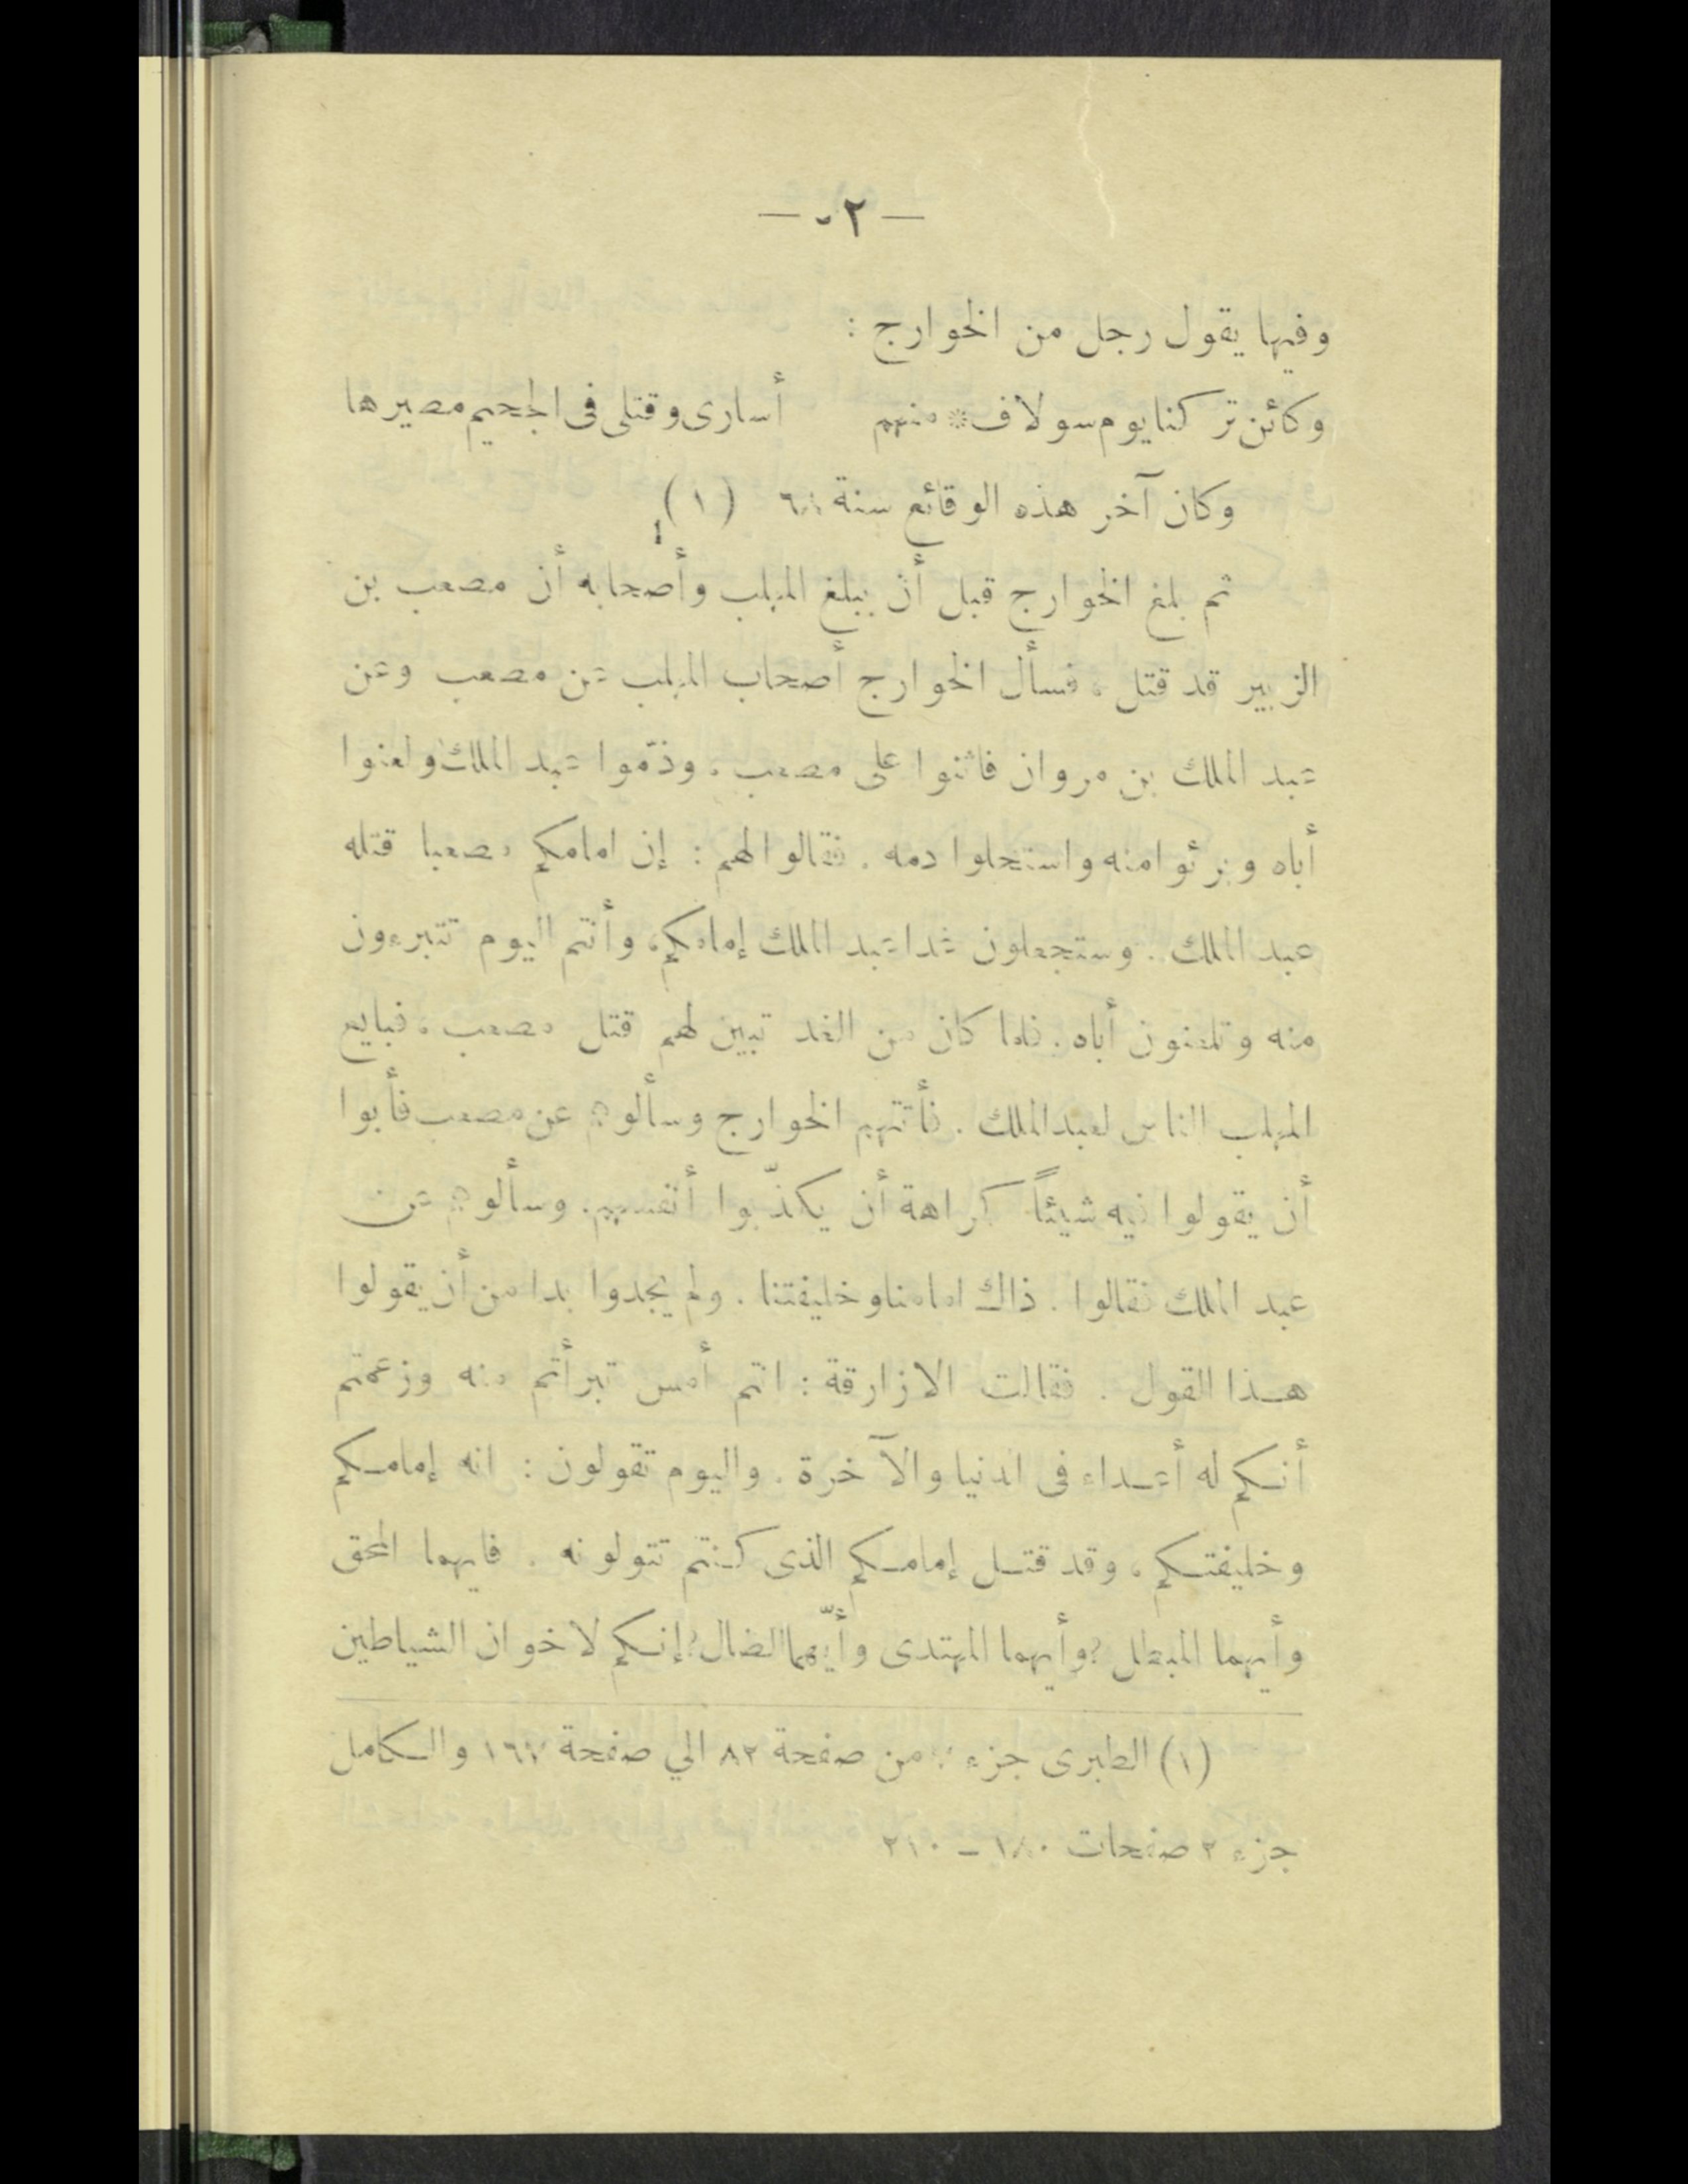 — ٢٠ —
وفيها يقول رجل من الخوارج :
وكائن تركنا يوم سولاف * منهم أسارى وقتلى في الجحيم مصيرها
وكان آخر هذه الوقائع سنة ٦٨ (١)
ثم بلغ الخوارج قبل أن يبلغ المهلب وأصحابه أن مصعب بن
الزبير قد قتل ، فسأل الخوارج أصحاب المهلب عن مصعب وعن
عبد الملك بن مروان فاثنوا على مصعب . وذمّوا عبد الملك ولعنوا
أباه وبرئوا منه واستحلوا دمه . فقالوا لهم : إن امامكم مصعبا قتله
عبد الملك . وستجعلون غدا عبد الملك إمامكم ، وأنتم اليوم تتبرءون
منه وتلعنون أباه . فلما كان من الغد تبين لهم قتل مصعب ، فبايع
المهلب الناس لعبد الملك . فأتتهم الخوارج وسألوهم عن مصعب فأبوا
أن يقولوا فيه شيئاً كراهة أن يكذّبوا أنفسهم . وسألوهم عن
عبد الملك فقالوا . ذاك امامنا وخليفتنا . ولم يجدوا بدا من أن يقولوا
هذا القول . فقالت الازارقة : انتم أمس تبرأتم منه وزعمتم
أنكم له أعداء فى الدنيا والآخرة . واليوم تقولون : انه إمامكم
وخليفتكم ، وقد قتل إمامكم الذى كنتم تتولونه . فايهما المحق
وأيهما المبطل ؟ وأيهما المهتدى وأيّهما الضال ؟ إنكم لاخوان الشياطين
(١) الطبرى جزء ٧ من صفحة ٨٢ الي صفحة ١٦٧ والكامل
جزء ٢ صفحات ١٨٠ – ٢١٠